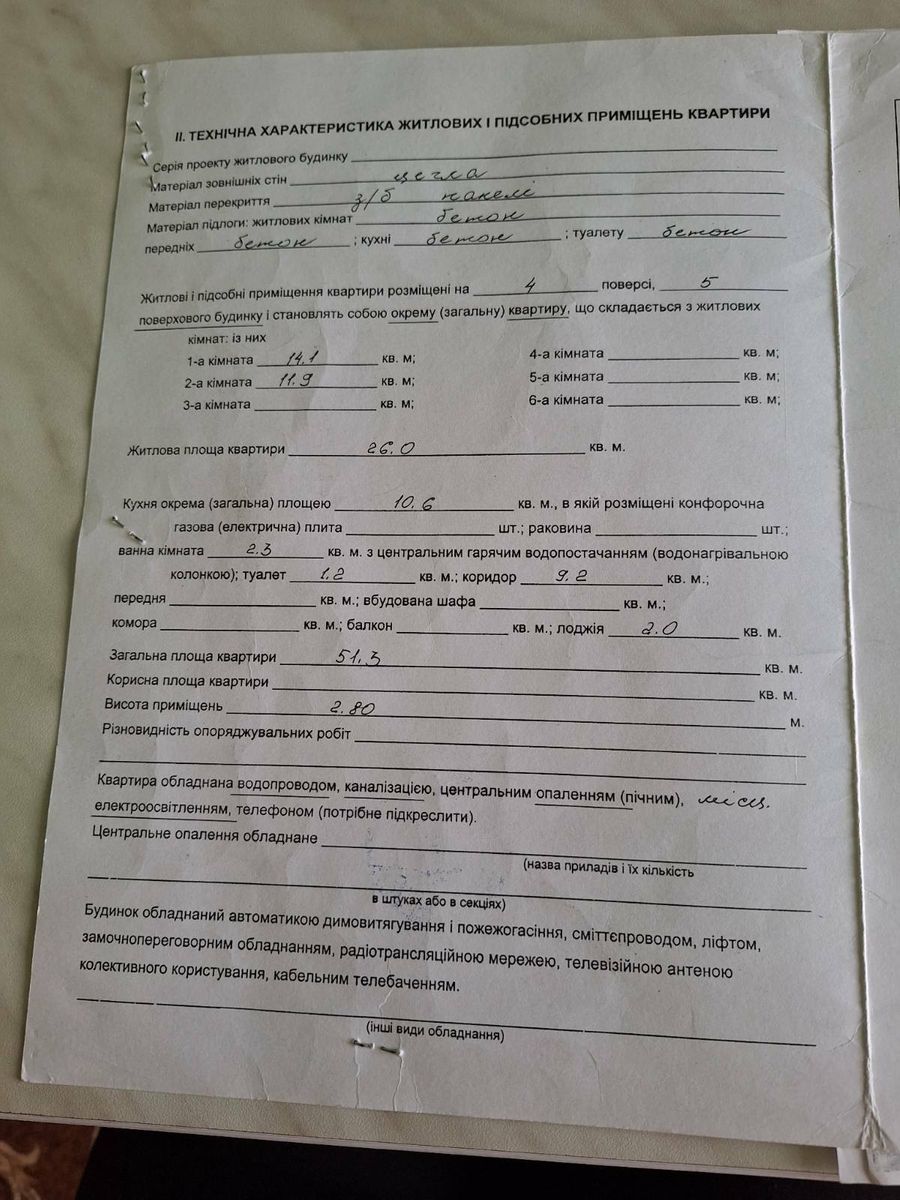 II. ТЕХНІЧНА ХАРАКТЕРИСТИКА ЖИТЛОВИХ І ПІДСОБНИХ ПРИМІЩЕНЬ КВАРТИРИ
Серія проекту житлового будинку
Матеріал зовнішніх стін цегла
Матеріал перекриття з/б панелі
Матеріал підлоги: житлових кімнат бетон
передніх бетон ; кухні бетон ; туалету бетон
Житлові і підсобні приміщення квартири розміщені на 4 поверсі, 5
поверхового будинку і становлять собою окрему (загальну) квартиру, що складається з житлових
кімнат: із них
1-а кімната 14.1 кв. м; 4-а кімната кв. м;
2-а кімната 11.9 кв. м; 5-а кімната кв. м;
3-а кімната кв. м; 6-а кімната кв. м;
Житлова площа квартири 26.0 кв. м.
Кухня окрема (загальна) площею 10.6 кв. м., в якій розміщені конфорочна
газова (електрична) плита шт.; раковина шт.;
ванна кімната 2.3 кв. м. з центральним гарячим водопостачанням (водонагрівальною
колонкою); туалет 1.2 кв. м.; коридор 9.2 кв. м.;
передня кв. м.; вбудована шафа кв. м.;
комора кв. м.; балкон кв. м.; лоджія 2.0 кв. м.
Загальна площа квартири 51.3 кв. м.
Корисна площа квартири кв. м.
Висота приміщень 2.80 м.
Різновидність опоряджувальних робіт
Квартира обладнана водопроводом, каналізацією, центральним опаленням (пічним), місц.
електроосвітленням, телефоном (потрібне підкреслити).
Центральне опалення обладнане
(назва приладів і їх кількість
в штуках або в секціях)
Будинок обладнаний автоматикою димовитягування і пожежогасіння, сміттєпроводом, ліфтом,
замочнопереговорним обладнанням, радіотрансляційною мережею, телевізійною антеною
колективного користування, кабельним телебаченням.
(інші види обладнання)